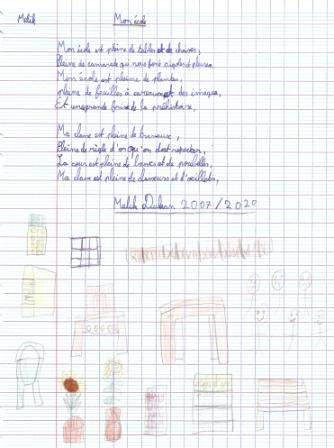 Malik
Mon école
Mon école est pleine de tables et de chaises,
Pleine de camarade qui nous font rigolent pleurer
Mon école est pleine de plantes,
pleine de feuilles à carreaux et des images,
Et une grande frise de la préhistoire,
Ma classe est pleine de travaux,
Pleine de règle d'on qu'on doit respecter,
La cour est pleine de bancs et de poubelles,
Ma classe est pleine de danseurs et d'oeillets,
Malik 2007/2020